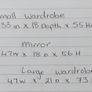 Small wardrobe
33 in x 18 Depth x 55 H
Mirror
47 w x 18 n x 56 H
Large wardrobe
47 w x 21 n x 73